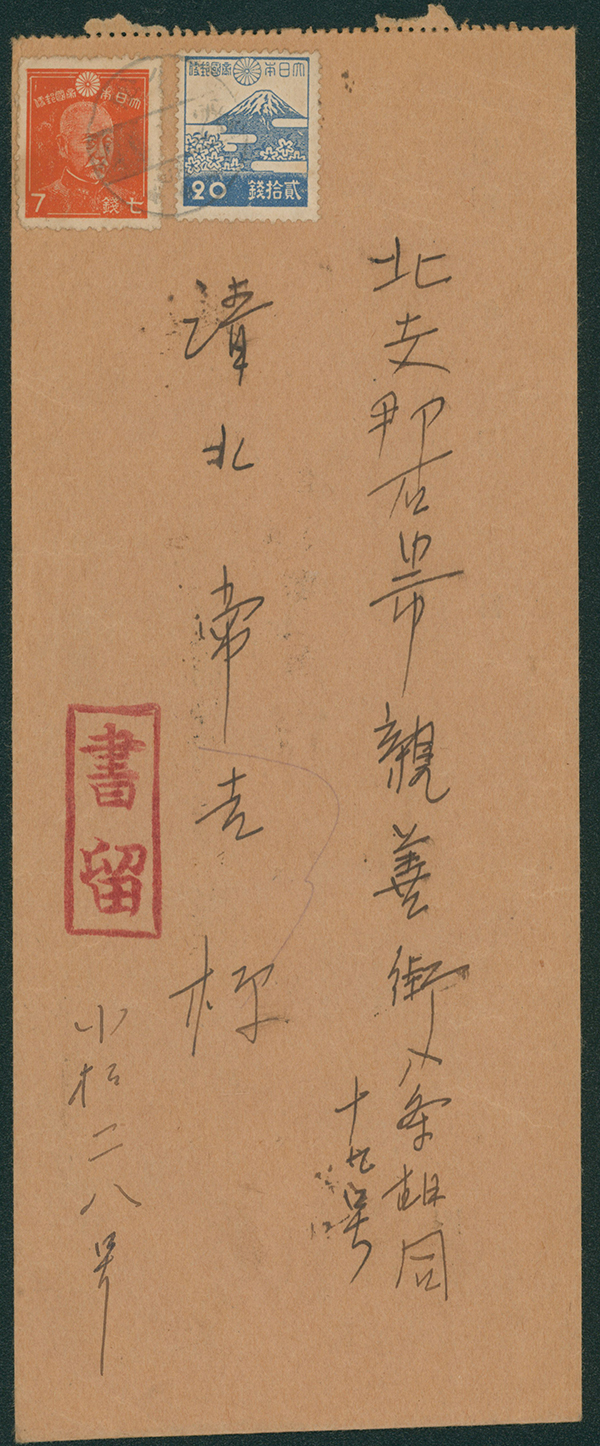 大日本帝國郵便
7
七錢
大日本帝國郵便
20
貳拾錢
北支那石門市親善街八条胡同
十九号
清北常吉様
書留
小松二八号